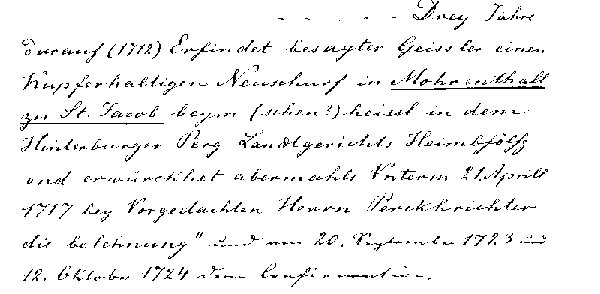 - - - - - Drey Jahre
darauf (1712) Erfindet besagter Geissler einen
Kupferhaltigen Neuschurf in Mohrenthall
zu St. Jacob beym (schen?) heisst in dem
Hinterburger Perg Landtgerichts Heimbfölß
und erwürckhet abermahls Vnterm 21 Aprill
1717 bey Vorgedachten Herrn Perckhrichter
die belehnung" und am 20. September 1723 und
12. Oktober 1724 dem Confirmation.